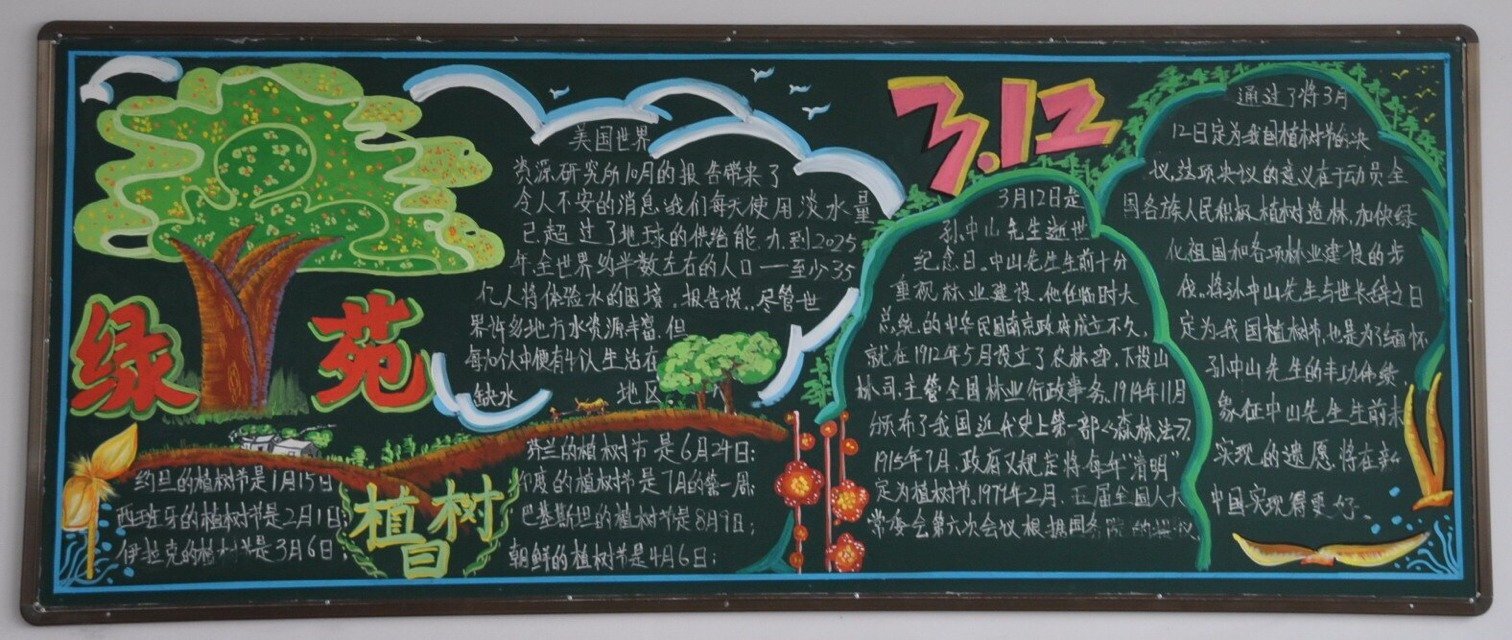 绿苑
美国世界
资源研究所10月的报告带来了
令人不安的消息,我们每天使用淡水量
已超过了地球的供给能力,到2025
年,全世界约半数左右的人口——至少35
亿人将体验水的困境。报告说,尽管世
界许多地方水资源丰富,但
每10人中便有4人生活在
缺水 地区
约旦的植树节是1月15日
西班牙的植树节是2月1日;
伊拉克的植树节是3月6日;
植树
日
芬兰的植树节是6月24日;
印度的植树节是7月的第一周;
巴基斯坦的植树节是8月9日;
朝鲜的植树节是4月6日;
3.12
3月12日是
孙中山先生逝世
纪念日。中山先生生前十分
重视林业建设。他任临时大
总统的中华民国南京政府成立不久,
就在1912年5月设立了农林部,下设山
林司,主管全国林业行政事务,1914年11月
颁布了我国近代史上第一部《森林法》,
1915年7月,政府又规定将每年“清明”
定为植树节。1979年2月,五届全国人大
常委会第六次会议根据国务院的提议
通过了将3月
12日定为我国植树节的决
议,这项决议的意义在于动员全
国各族人民积极植树造林,加快绿
化祖国和各项林业建设的步
伐。将孙中山先生与世长辞之日
定为我国植树节,也是为了缅怀
孙中山先生的丰功伟绩
象征中山先生生前未
实现的遗愿,将在新
中国实现得更好。